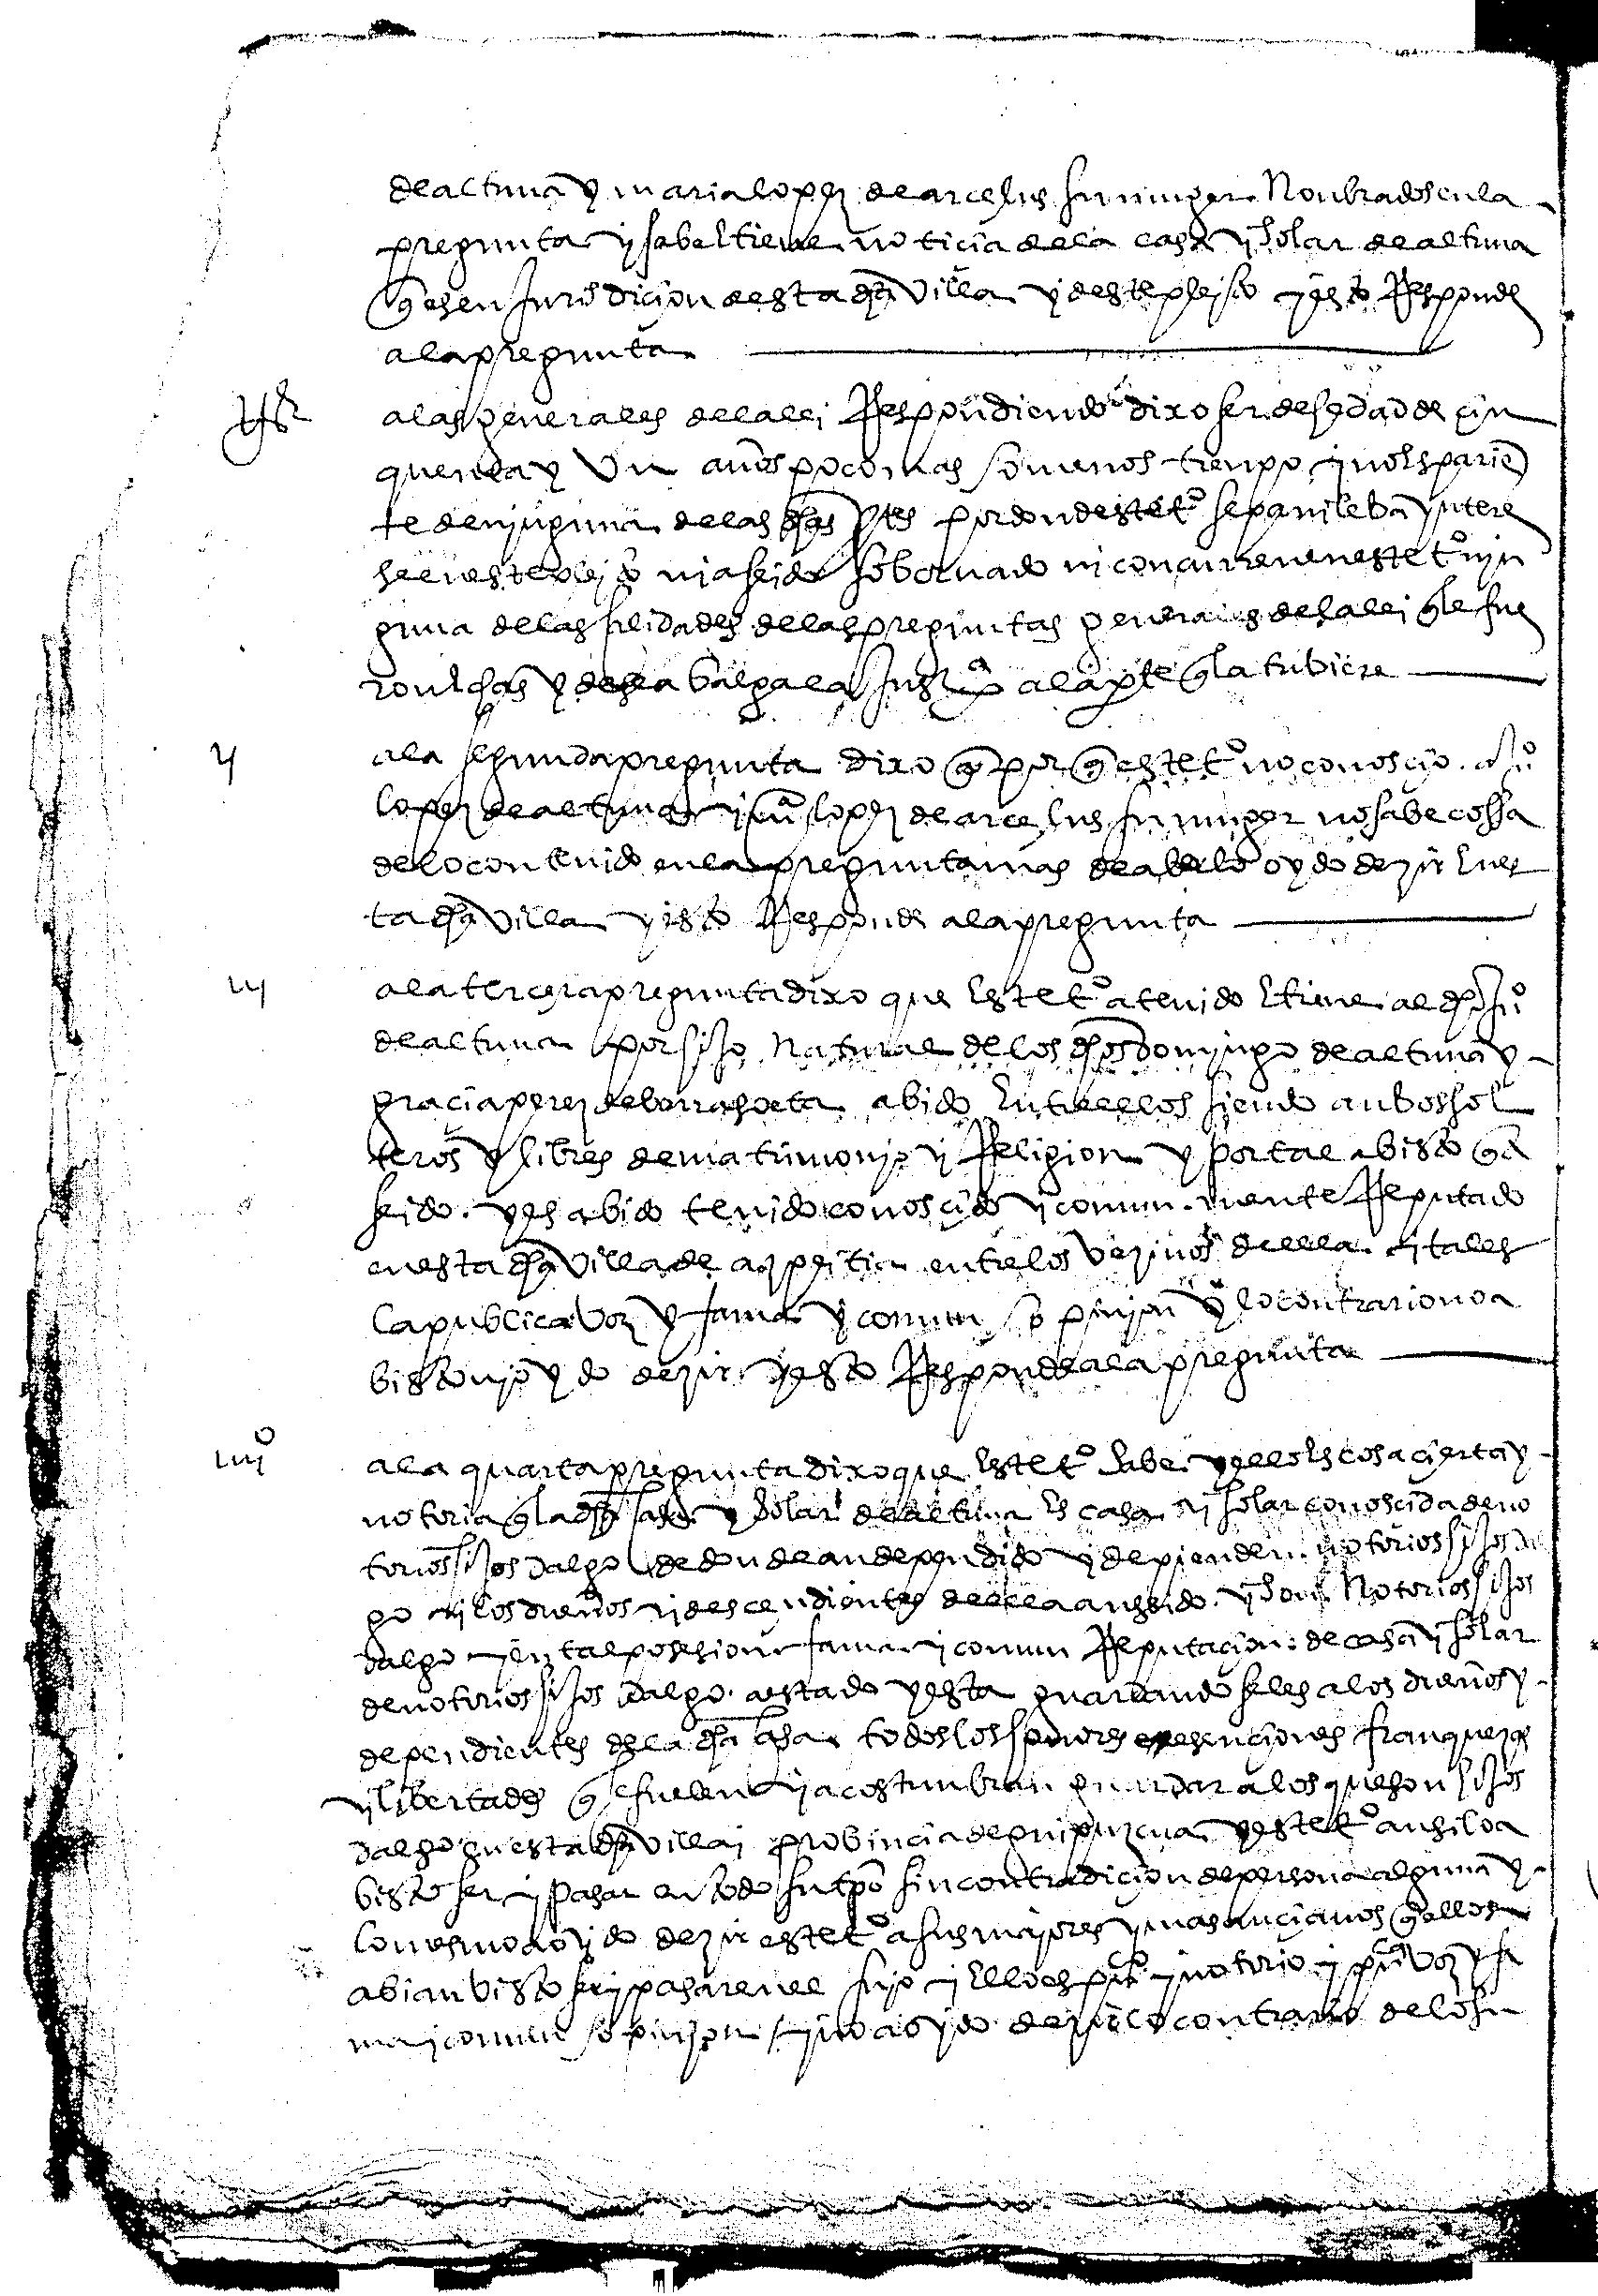 de altuna y maria lopez de arcelus su muger nonbrados en la
pregunta y sabe e tiene noticia de la casa y solar de altuna
q̃ es en jurisdicion desta dha villa y deste pleito y esto Responde
a la pregunta
a las generales de la lei Respondiendo dixo ser de hedad de cin
quenta y un años poco mas o menos tienpo y no es parien
te de ninguna de las dhas ptes por donde este tº sepa ni le ba yntere
se en este pleito ni a seido sobornado ni concurren en este tº nin
guna de las calidades de las preguntas generales de la lei q̃ le fue
ron dhas y desea balga la justª a la pte q̃ la tubiere
ij a la segunda pregunta dixo q̃ por q̃ este tº no conoscio a juº
lopez de altuna y mª lopez de arcelus su muger no sabe cossa
de lo contenido en la pregunta mas de aberlo oydo dezir en es
ta dha villa y esto Responde a la pregunta
iij a la tercera pregunta dixo que este tº a tenido e tiene al dho juº
de altuna por hijo natural de los dhos domingo de altuna y
gracia perez de barrasoeta abido entre ellos siendo anbos sol
teros y libres de matrimonio y Religion y por tal a bisto q̃ a
seido y es abido tenido conoscido y comunmente Reputado
en esta dha villa de azpeitia entre los vezinos della y tal es
la publica voz y fama y comun opinion y lo contrario no a
bisto ni oydo dezir y esto Responde a la pregunta
iiijº a la quarta pregunta dixo que este tº sabe y ello es cosa cierta y
notoria q̃ la dha casa y solar de altuna es casa y solar conoscida de no
torios hijos dalgo de donde an dependido y dependen notorios hijos dal
go y los dueños y descendientes della an seido y son notorios hijos
dalgo y en tal posesion fama y comun Reputacion de casa y solar
de notorios hijos dalgo a estado y esta guardandoseles a los dueños y
dependientes de la dha casa todos los honores esenciones franquezas
y libertades q̃ se suelen y acostunbran guardar a los que son hijos
dalgo en esta dha villa i probincia de guipuzcua y este tº ansi lo a
bisto ser y pasar en todo su tpo sin contradicion de persona alguna y
lo mesmo a oydo dezir este tº a sus mayores y mas ancianos q̃ ellos
abian bisto ser y pasar en el suyo y ello es puco y notorio y puca voz y fa
ma y comun opinion y no a oydo dezir lo contrario de lo su